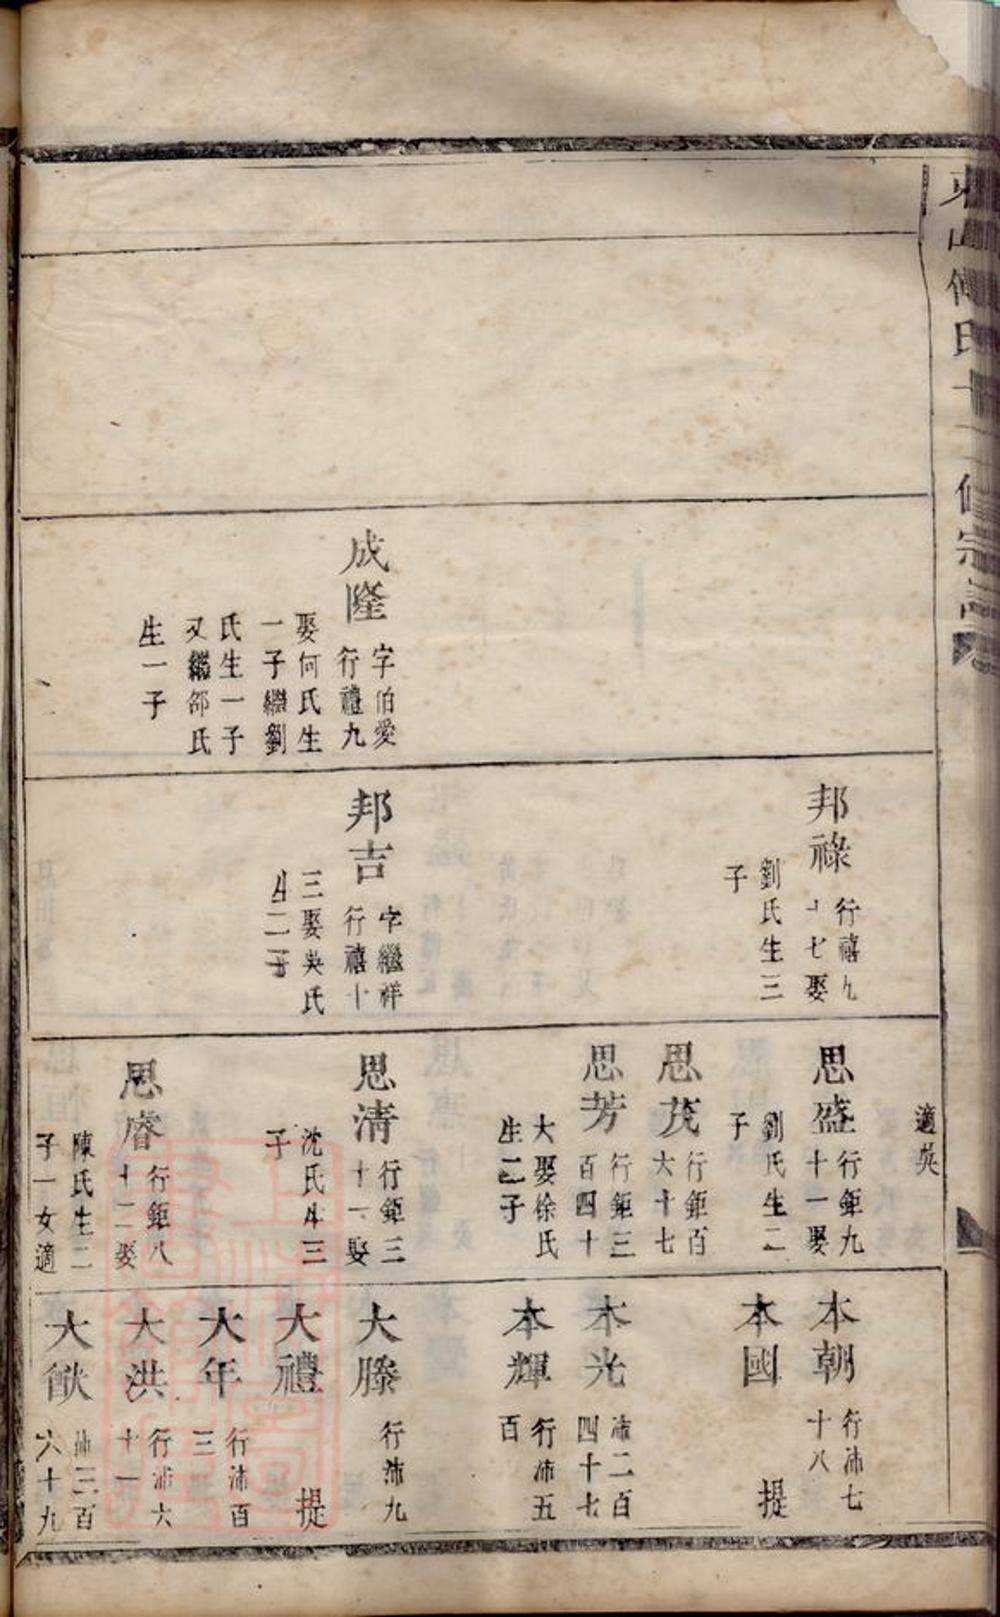 東山傅氏十二修宗譜
成隆
字伯愛
行禮九
娶何氏生
一子繼劉
氏生一子
又繼邵氏
生一子
邦祿
行禧九
十七娶
劉氏生三
子
邦吉
字繼祥
行禧十
三娶吳氏
生二子
適吳
思盛
行鉅九
十一娶
劉氏生二
子
思茂
行鉅百
六十七
思芳
行鉅三
百四十
大娶徐氏
生二子
思清
行鉅三
十一娶
沈氏生三
子
思睿
行鉅八
十二娶
陳氏生二
子一女適
本朝
行沛七
十八
本國
提
本光
沛二百
四十七
本輝
行沛五
百
大滕
行沛九
大禮
提
大年
行沛百
三
大洪
行沛六
十一
大猷
沛三百
六十九